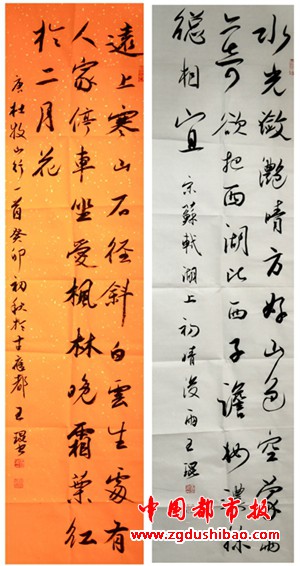 水光潋灩晴方好山色空蒙雨
亦奇欲把西湖比西子澹妝濃抹
總相宜
宋蘇軾湖上初晴後雨王璟
遠上寒山石径斜白雲生處有
人家停車坐愛楓林晚霜葉紅
於二月花
唐杜牧山行一首癸卯初秋於古應都王璟书
中国都市报
www.zgdushibao.com